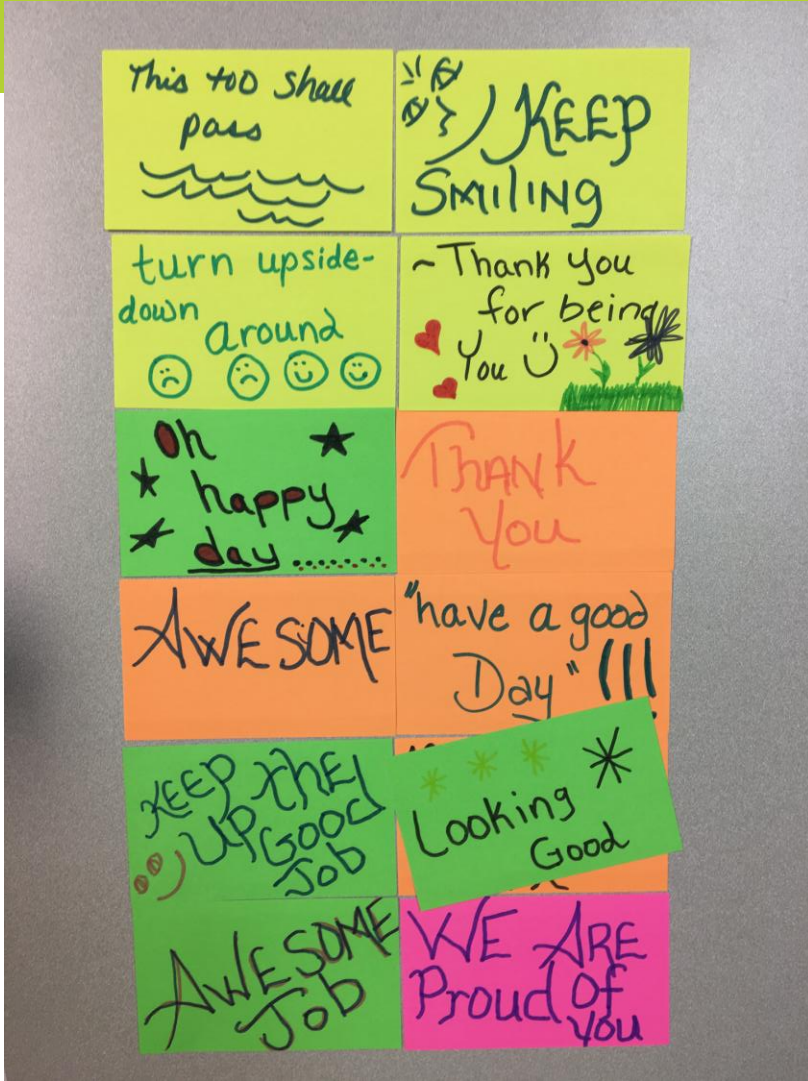 This too shall
pass
KEEP
SMILING
turn upside-
down
around
~Thank you
for being
You
Oh
happy
day ............
THANK
You
AWESOME
"have a good
Day" !!!
KEEP THE
UP GOOD
JOB
Looking
Good
AWESOME
JOB
WE ARE
Proud of
you